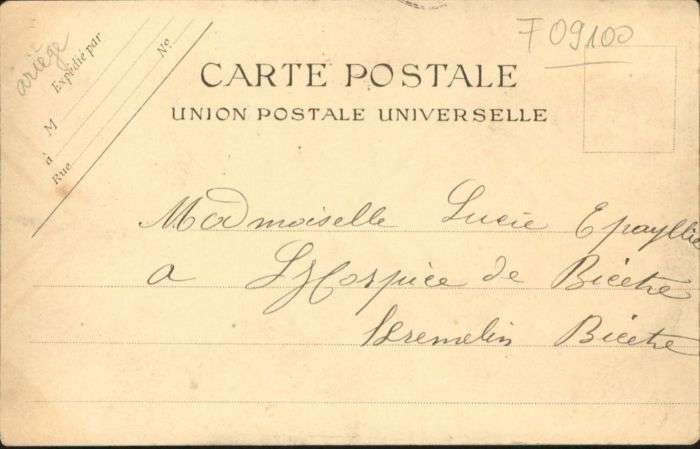 F 09100
ariège
Expédié par
M
à
Rue Nº
CARTE POSTALE
UNION POSTALE UNIVERSELLE
Madmoiselle Lucie Epayllie
a L'Hospice de Bicetre
Kremelin Bicetre